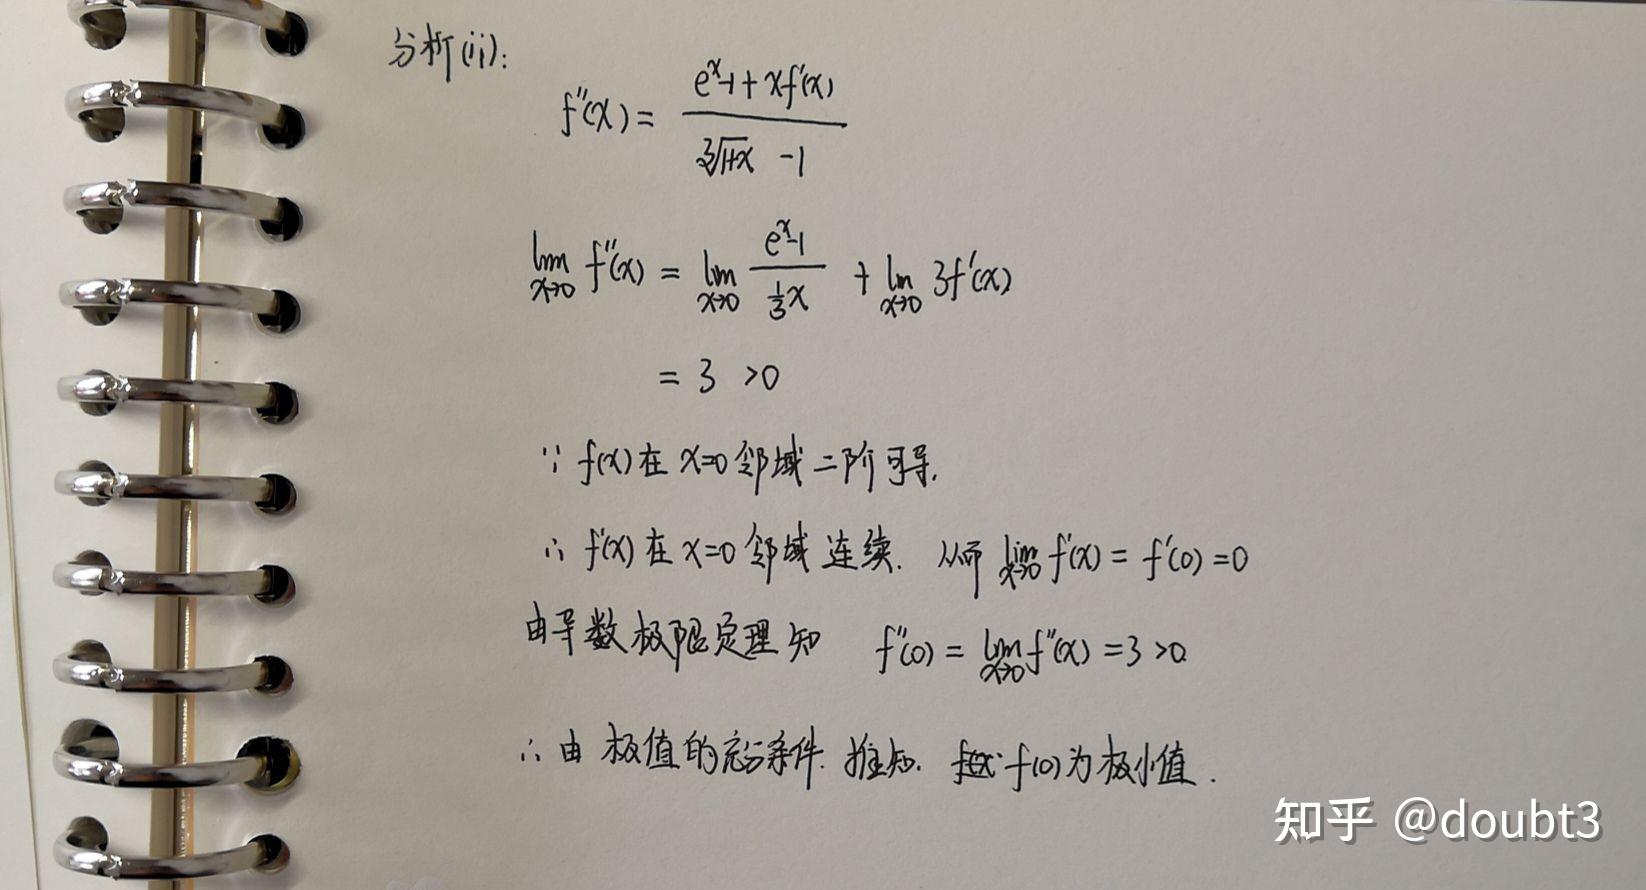 分析(ii):
f''(x) = \frac{e^x-1+xf'(x)}{\sqrt[3]{1+x} -1}
\lim_{x→0} f''(x) = \lim_{x→0} \frac{e^x-1}{\frac{1}{3}x} + \lim_{x→0} 3f'(x)
= 3 >0
∵ f(x)在 x=0 邻域二阶可导.
∴ f'(x)在 x=0 邻域连续. 从而 \lim_{x→0} f'(x) = f'(0) =0
由导数极限定理知 f''(0) = \lim_{x→0} f''(x) =3 >0.
∴ 由极值的充分条件. 推知. f(0)为极小值.
知乎 @doubt3